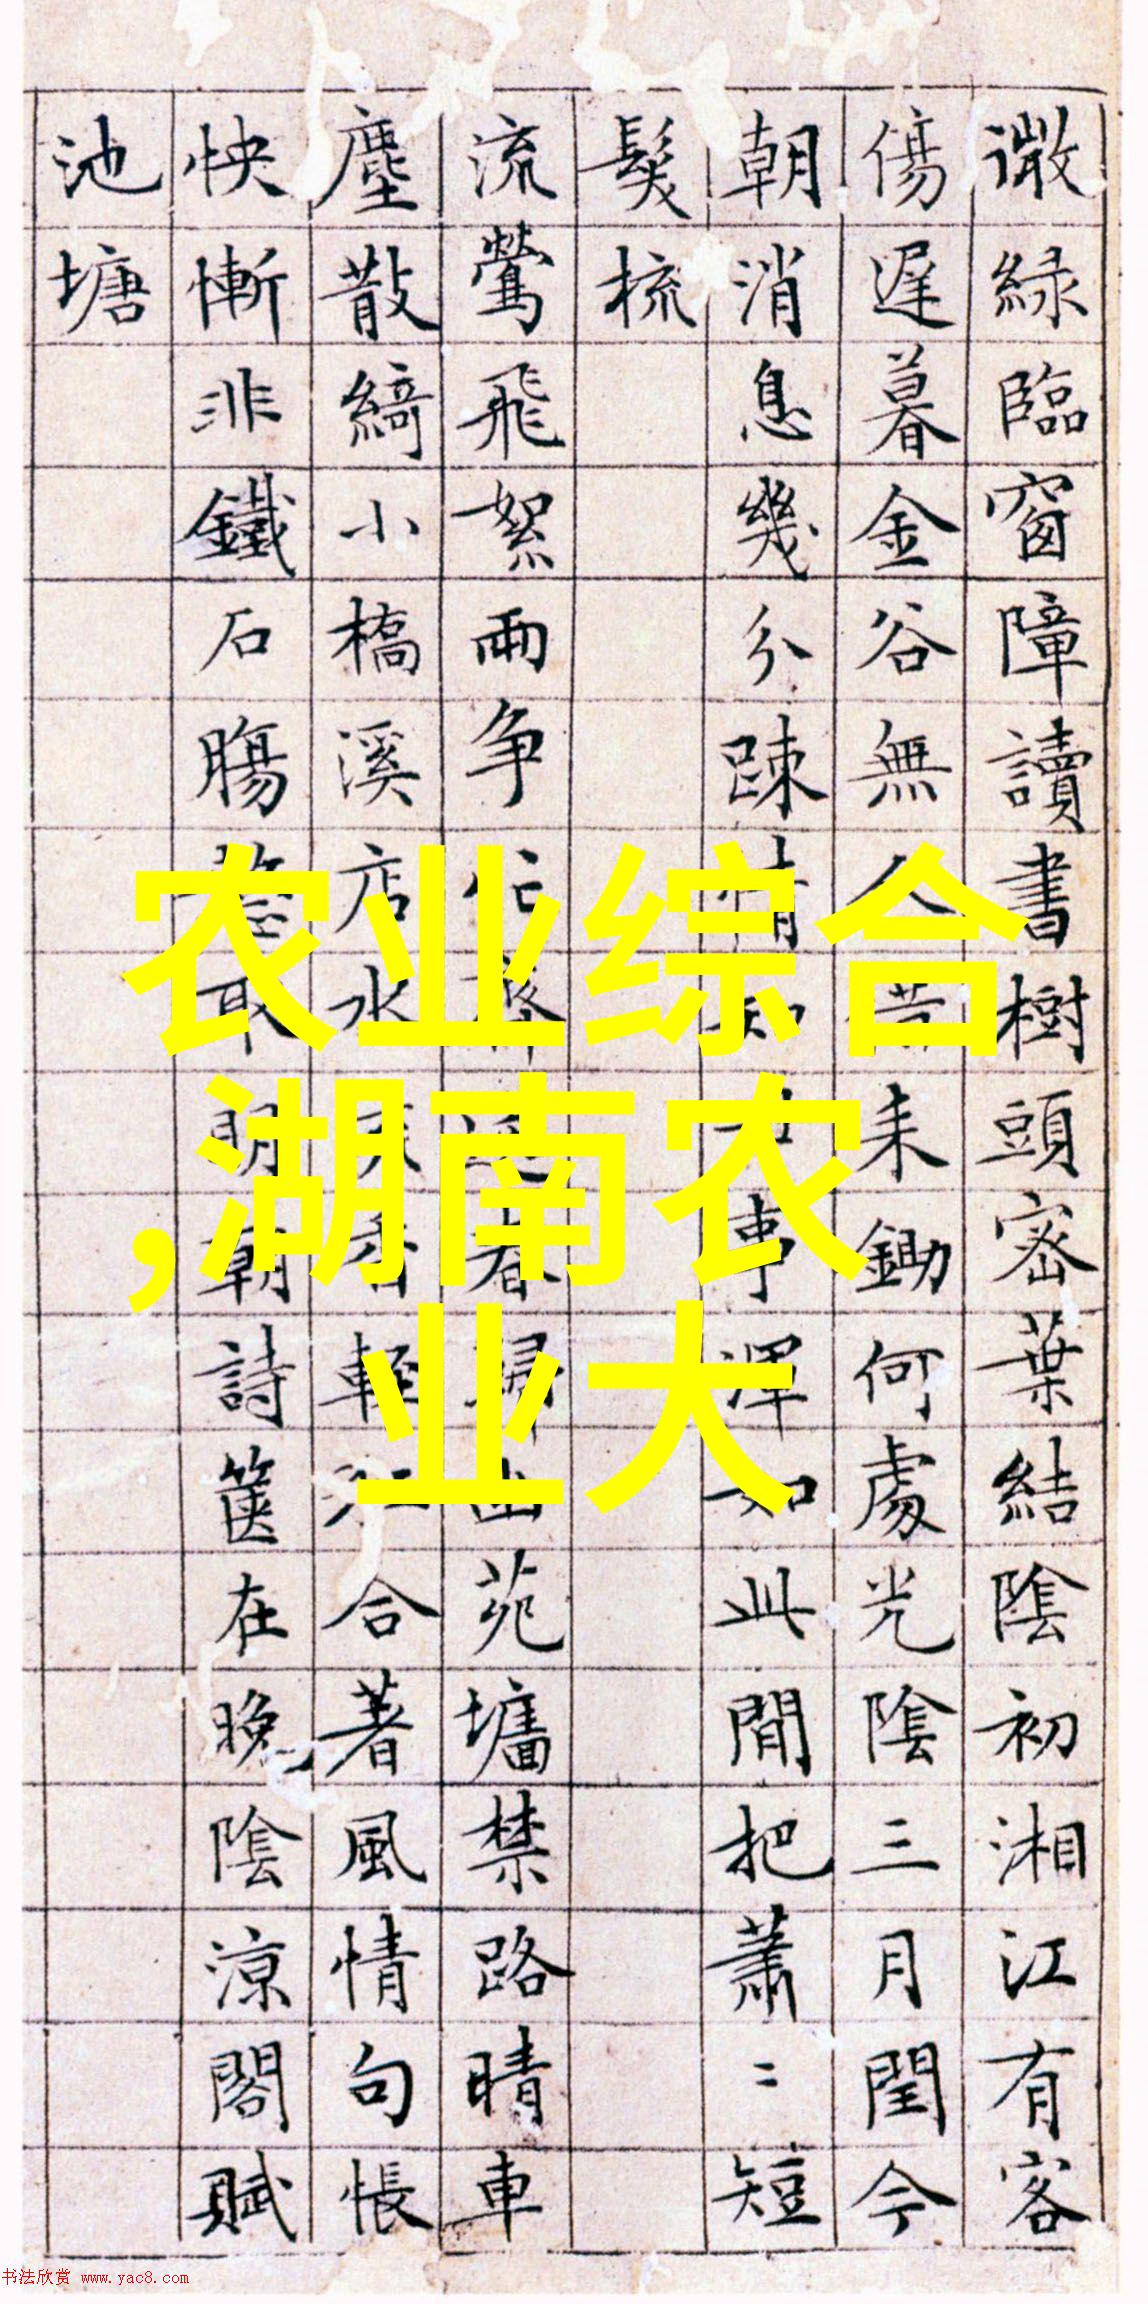 微綠臨窗障讀書樹頭密葉結陰初湘江有客
傷遲暮金谷無人耒鋤何處光陰三月閏今
朝消息幾分踈情知事渾如此間把蕭〻短
髮梳
流鶯飛絮兩爭忙春歸苑墻禁路晴車
塵散綺小橋溪店水香輕江合著風情句悵
怏慚非鐵石腸取明朝詩篋在晚陰涼閣賦
池塘
农业综合
,湖南农
业大
书法欣赏 www.yac8.com